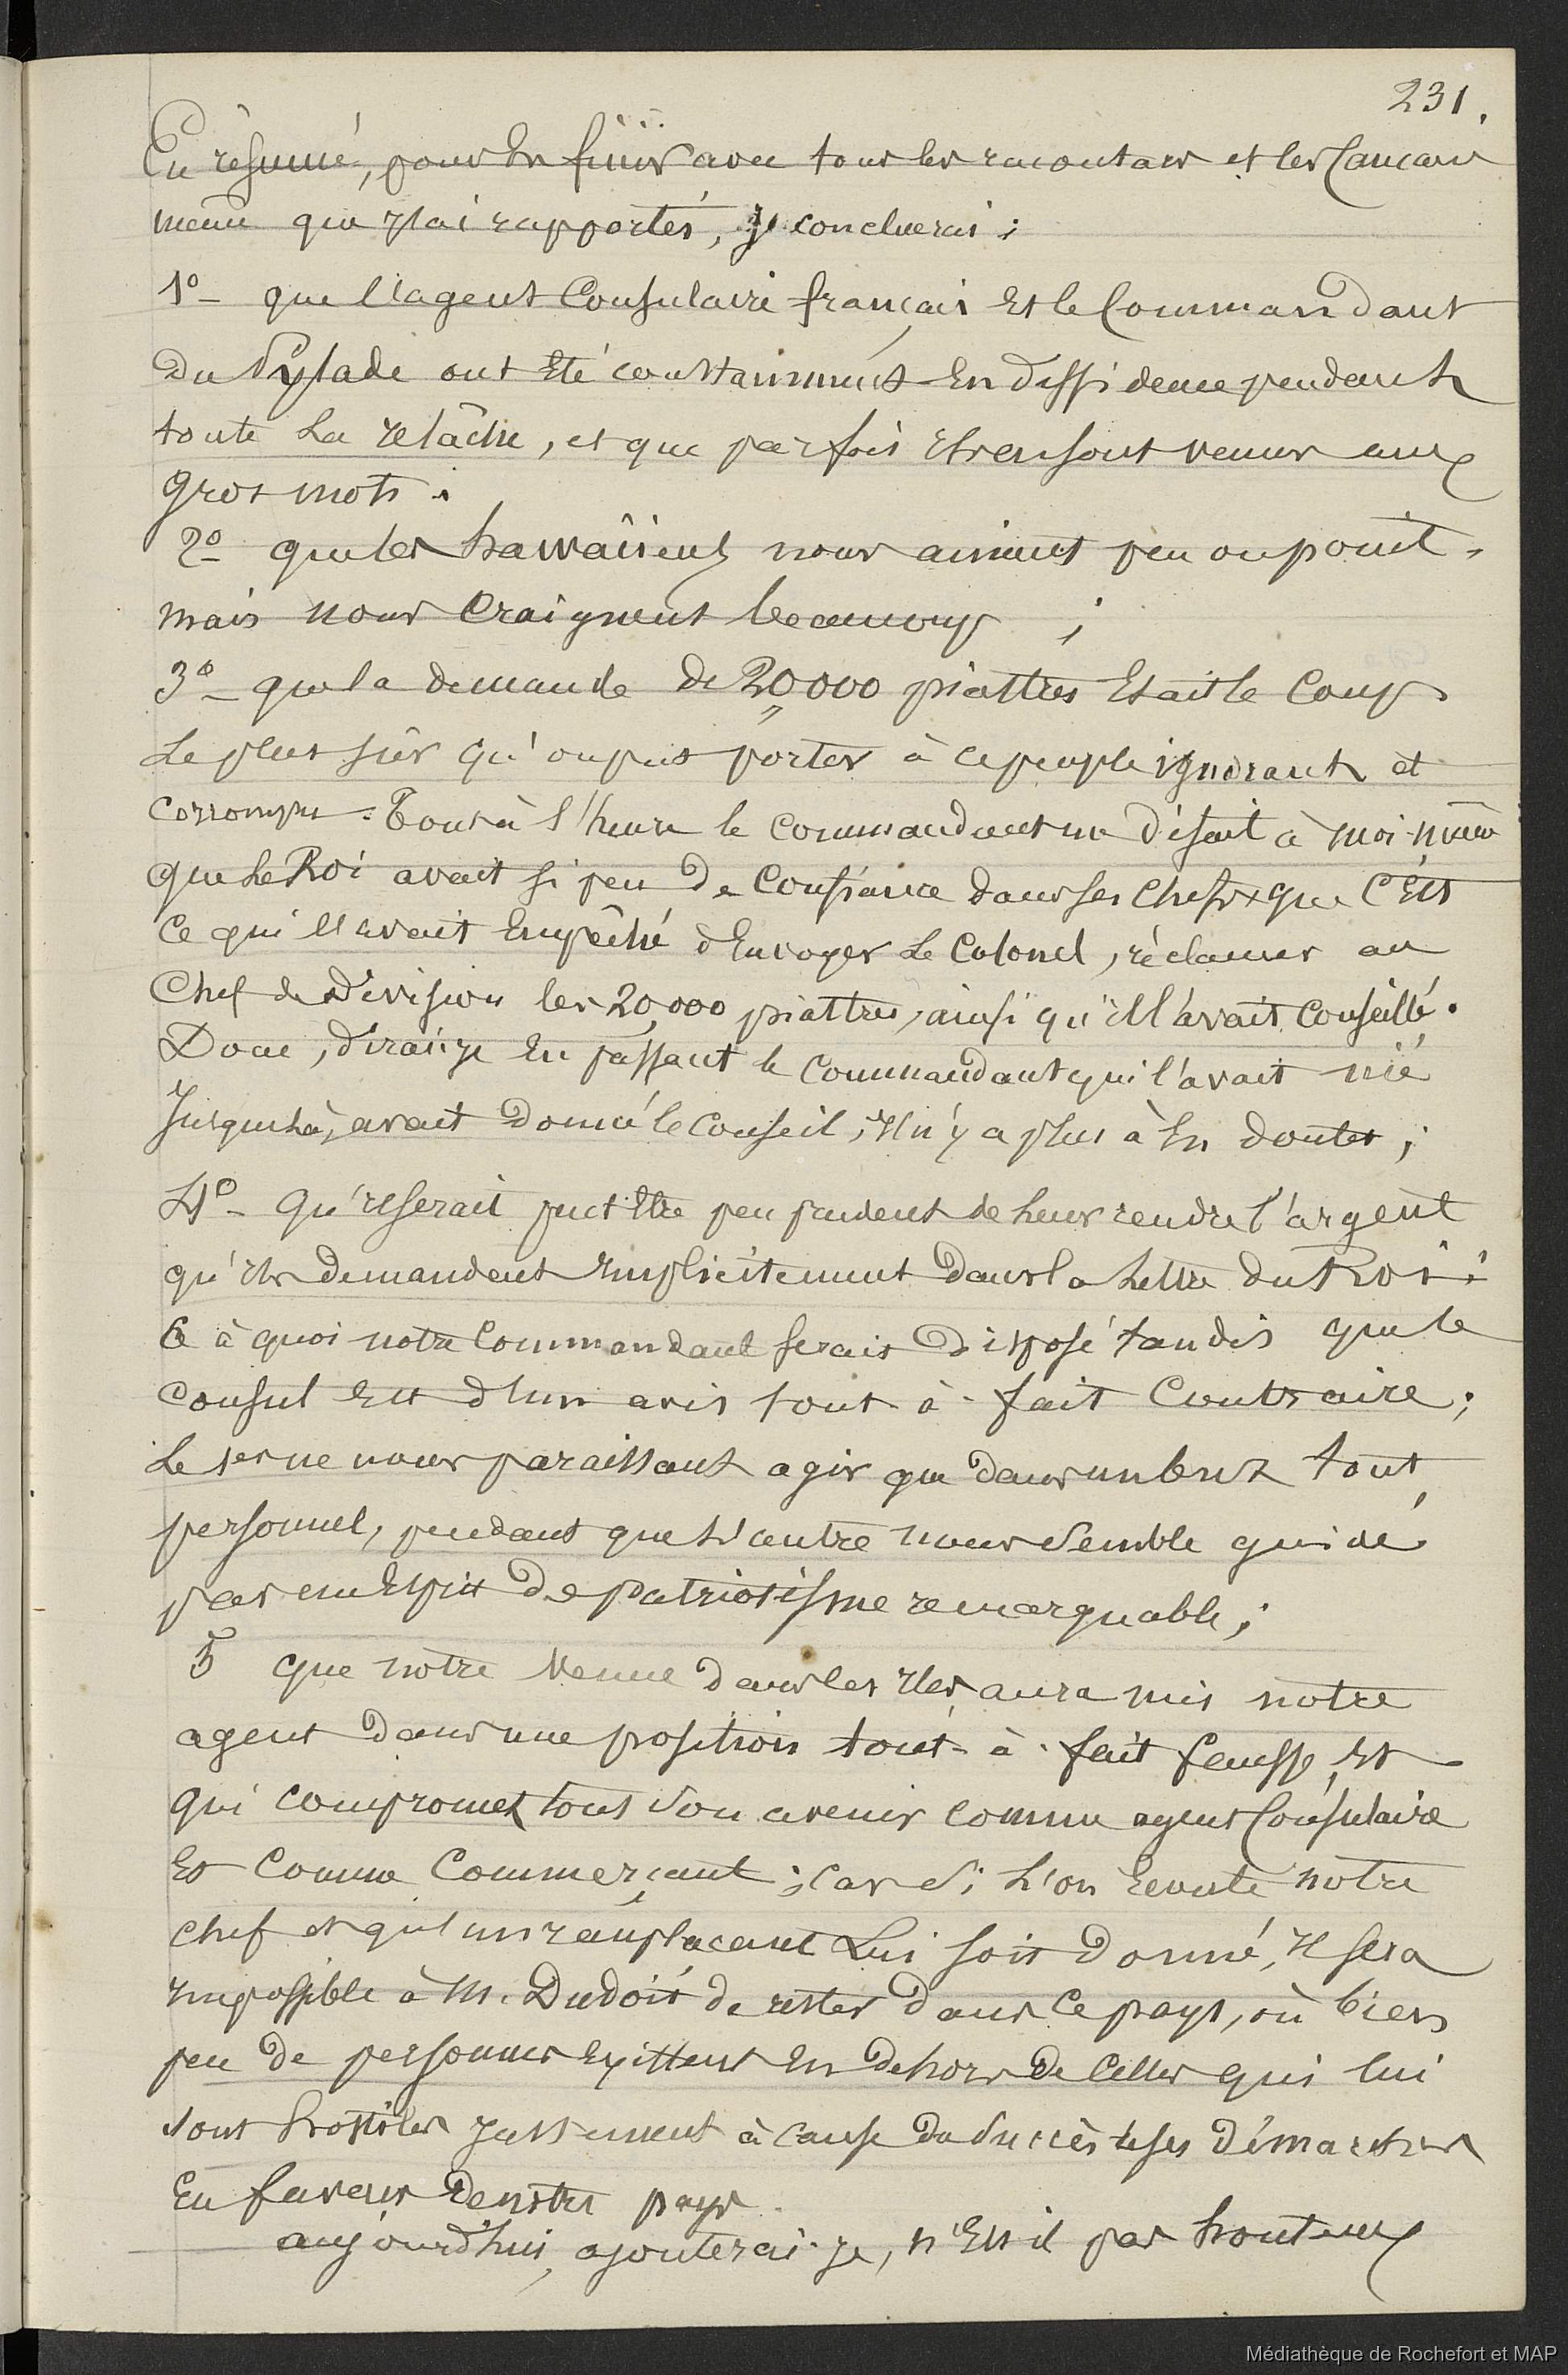 231.
En résumé, pour En finir avec tous les racontars et les Cancans
même que j'ai rapportés, je concluerai :
1º - que l'agent Consulaire français Et le Commandant
Du Pylade ont Eté constamment En dissidence pendant
toute La relâche, et que parfois ils en sont venus aux
Gros mots.
2º que les hawaïiens nous aiment peu ou point,
mais nous Craignent beaucoup ;
3º - que la demande de 20,000 piastres Etait le Coup
Le plus sûr qu'on pus porter à ce peuple ignorant et
Corrompu. Tout à l'heure le commandant me disait à moi-même
que Le Roi avait si peu De Confiance dans ses Chefs que C'Est
Ce qui l'avait Empêché d'Envoyer Le Colonel, réclamer au
Chef de Division les 20,000 piastres, ainsi qu'il l'avait Conseillé.
Donc, dirai-je En passant le Commandant qui l'avait nié
Jusque là, avait Donné le Conseil, il n'y a plus à En douter ;
4º - Qu'il serait peut Etre peu prudent de Leur rendre l'argent
qu'ils Demandent implicitement Dans la Lettre du Roi :
Ce à quoi notre Commandant serais Disposé tandis que le
Consul Est d'un avis tout à-fait Contraire ;
Le 1er ne nous paraissant agir que dans un but tout
personnel, pendant que L'autre nous Semble guidé
par un Esprit De patriotisme remarquable ;
5 Que notre Venue dans les Iles aura mis notre
agent Dans une position tout-à-fait fausse Et
qui compromet tout Son avenir comme agent Consulaire
Et Comme Commerçant ; Car Si L'on Ecoute notre
chef et qu'un remplaçant Lui soit Donné, Il sera
impossible à M. Dudoit de rester Dans Ce pays, où bien
peu De personnes Existent En Dehors De Celles qui lui
sont hostiles justement à Cause Du Succès de ses Démarches
En faveur De notre pays.
aujourd'hui, ajouterai-je, n'Est il pas honteux
Médiathèque de Rochefort et MAP